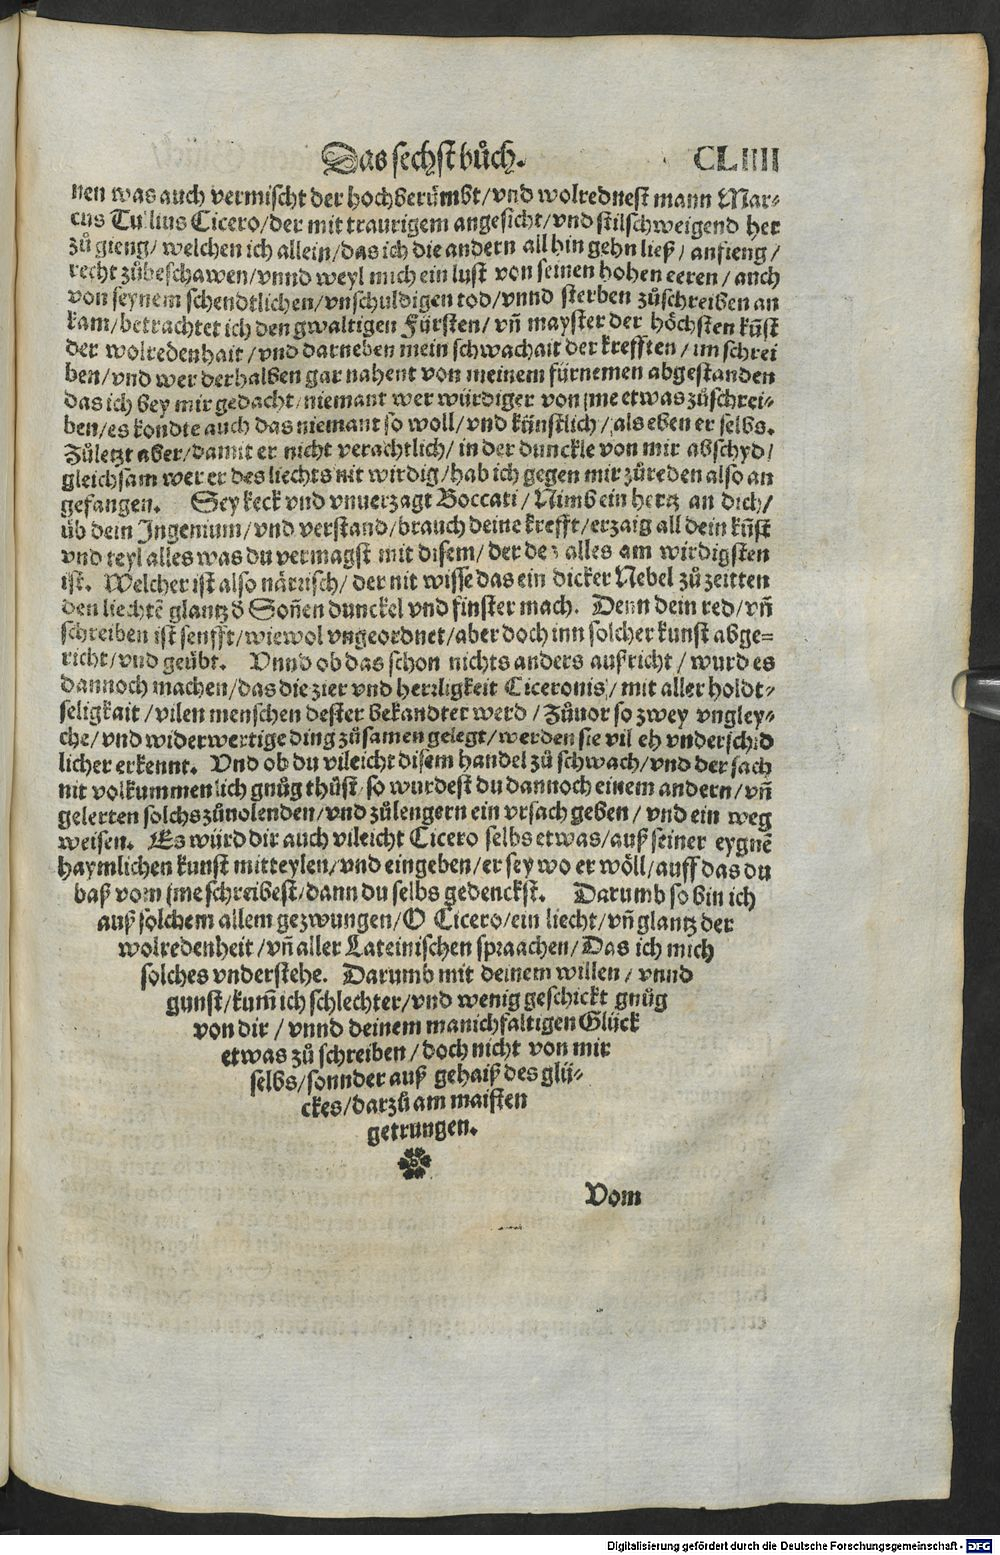 Das sechst bůch. CLIIII
nen was auch vermischt der hochberümbt/vnd wolrednest mann Mar-
cus Tullius Cicero/der mit traurigem angesicht/vnd stilschweigend her
zů gieng/welchen ich allein/das ich die andern all hin gehn ließ/anfieng/
recht zůbeschawen/vnnd weyl mich ein lust von seinen hohen eeren/auch
von seynem schendtlichen/vnschuldigen tod/vnnd sterben zůschreiben an
kam/betrachtet ich den gwaltigen Fürsten/vñ mayster der höchsten kũst
der wolredenhait/vnd darneben mein schwachait der krefften/im schrei
ben/vnd wer derhalben gar nahent von meinem fürnemen abgestanden
das ich bey mir gedacht/niemant wer würdiger von jme etwas zůschrei-
ben/es kondte auch das niemant so woll/vnd künstlich/als eben er selbs.
Zůletzt aber/damit er nicht verachtlich/in der dunckle von mir abschyd/
gleichsam wer er des liechts nit wirdig/hab ich gegen mir zůreden also an
gefangen. Sey keck vnd vnuerzagt Boccati/Nimb ein hertz an dich/
üb dein Ingenium/vnd verstand/brauch deine krefft/erzaig all dein kũst
vnd teyl alles was du vermagst mit disem/der des alles am wirdigsten
ist. Welcher ist also närrisch/der nit wisse das ein dicker Nebel zů zeitten
den liechtẽ glantz d Soñen dunckel vnd finster mach. Denn dein red/vñ
schreiben ist senfft/wiewol vngeordnet/aber doch inn solcher kunst abge=
richt/vnd geübt. Vnnd ob das schon nichts anders außricht/wurd es
dannoch machen/das die zier vnd herrligkeit Ciceronis/mit aller holdt-
seligkait/vilen menschen dester bekandter werd/Zůuor so zwey vngley-
che/vnd widerwertige ding zůsamen gelegt/werden sie vil eh vnderschid
licher erkennt. Vnd ob du vileicht disem handel zů schwach/vnd der sach
nit volkummenlich gnůg thůst/so wurdest du dannoch einem andern/vñ
gelerten solchs zůuolenden/vnd zůlengern ein vrsach geben/vnd ein weg
weisen. Es würd dir auch vileicht Cicero selbs etwas/auß seiner eygnẽ
haymlichen kunst mitteylen/vnd eingeben/er sey wo er wöll/auff das du
baß vom jme schreibest/dann du selbs gedenckst. Darumb so bin ich
auß solchem allem gezwungen/O Cicero/ein liecht/vñ glantz der
wolredenheit/vñ aller Lateinischen spraachen/Das ich mich
solches vnderstehe. Darumb mit deinem willen/vnnd
gunst/kum̃ ich schlechter/vnd wenig geschickt gnůg
von dir/vnnd deinem manichfaltigen Glück
etwas zů schreiben/doch nicht von mir
selbs/sonnder auß gehaiß des glü-
ckes/darzů am maisten
getrungen.
Vom
Digitalisierung gefördert durch die Deutsche Forschungsgemeinschaft - DFG